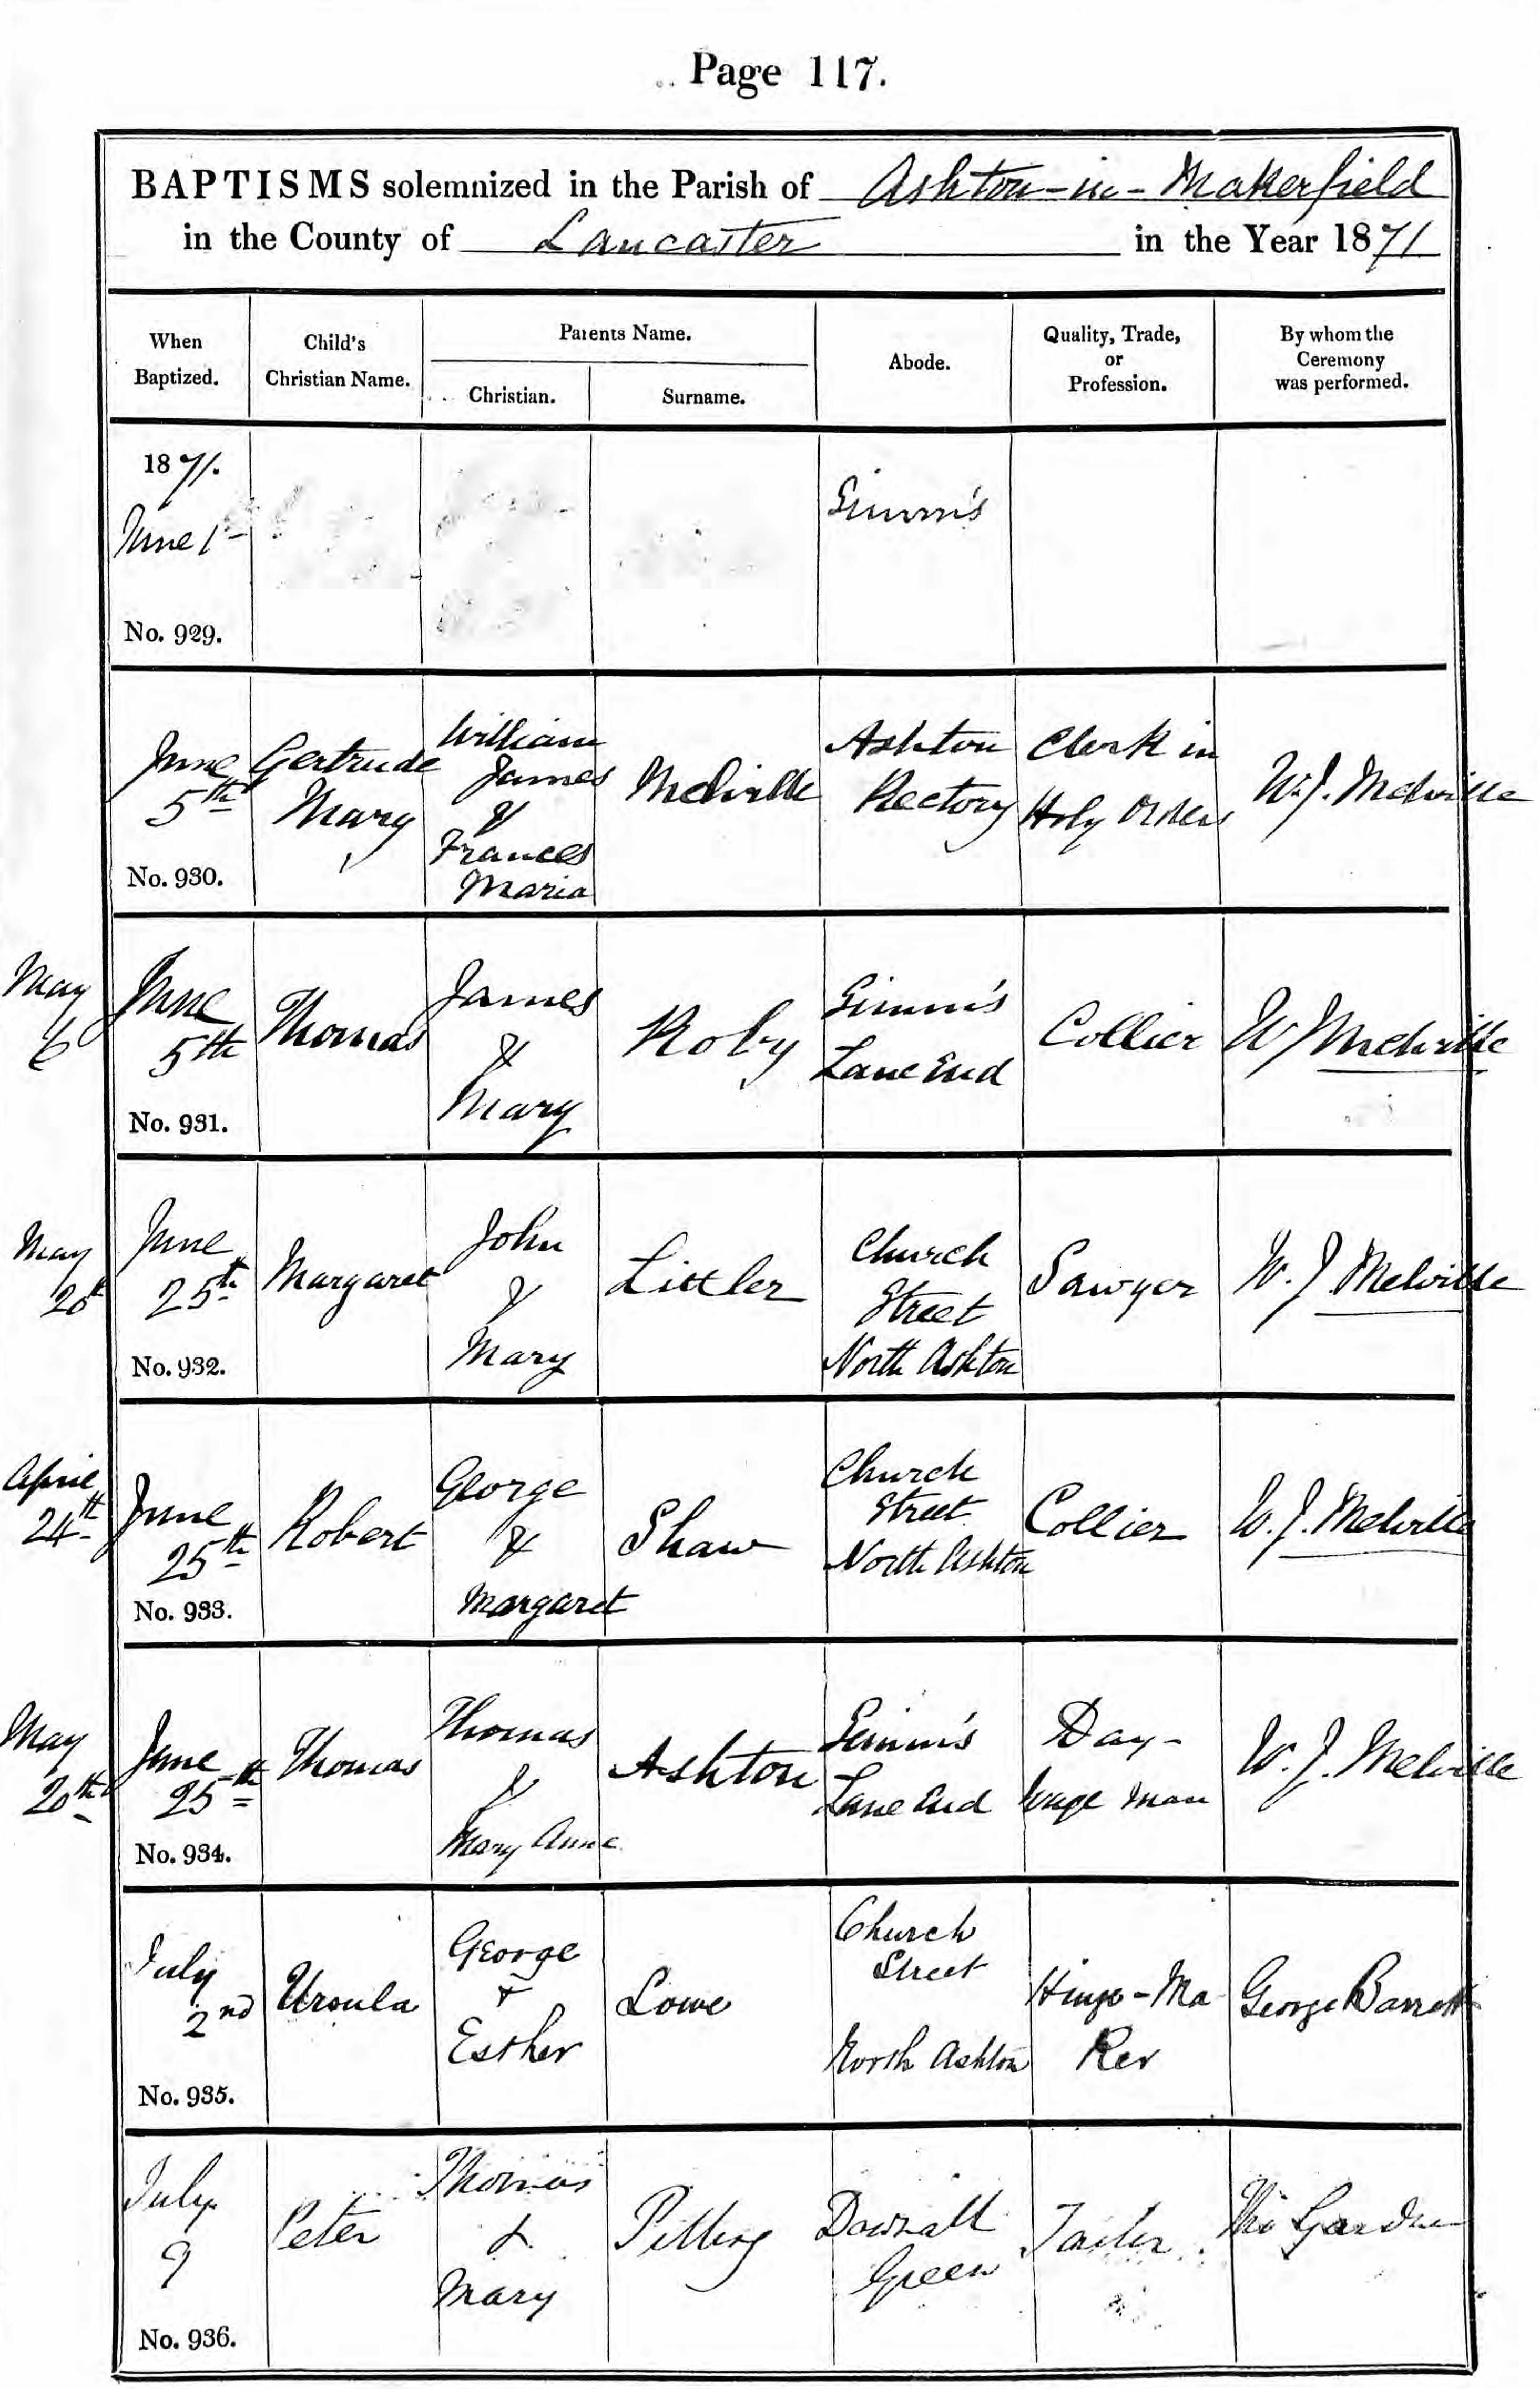 Page 117.
BAPTISMS solemnized in the Parish of Ashton-in-Makerfield
in the County of Lancaster in the Year 1871
When Baptized.
Child's Christian Name.
Parents Name.
Christian.
Surname.
Abode.
Quality, Trade, or Profession.
By whom the Ceremony was performed.
1871.
June 1st
Simm's
No. 929.
June
5th
Gertrude
Mary
William
James
&
Frances
Maria
Melville
Ashton
Rectory
Clerk in
Holy Orders
W. J. Melville
No. 930.
May
6
June
5th
Thomas
James
&
Mary
Roby
Simm's
Lane End
Collier
W J Melville
No. 931.
May
June
25th
Margaret
John
&
Mary
Littler
Church
Street
North Ashton
Sawyer
W. J. Melville
No. 932.
April
24th
June
25th
Robert
George
&
Margaret
Shaw
Church
Street
North Ashton
Collier
W. J. Melville
No. 933.
May
20th
June
25th
Thomas
Thomas
&
Mary Anne
Ashton
Simm's
Lane End
Day-
wage man
W. J. Melville
No. 934.
July
2nd
Ursula
George
+
Esther
Lowe
Church
Street
North Ashton
Hinge-Ma
Ker
George Barrett
No. 935.
July
9
Peter
Thomas
&
Mary
Pilling
Downall
Green
Tailor
Gardner
No. 936.